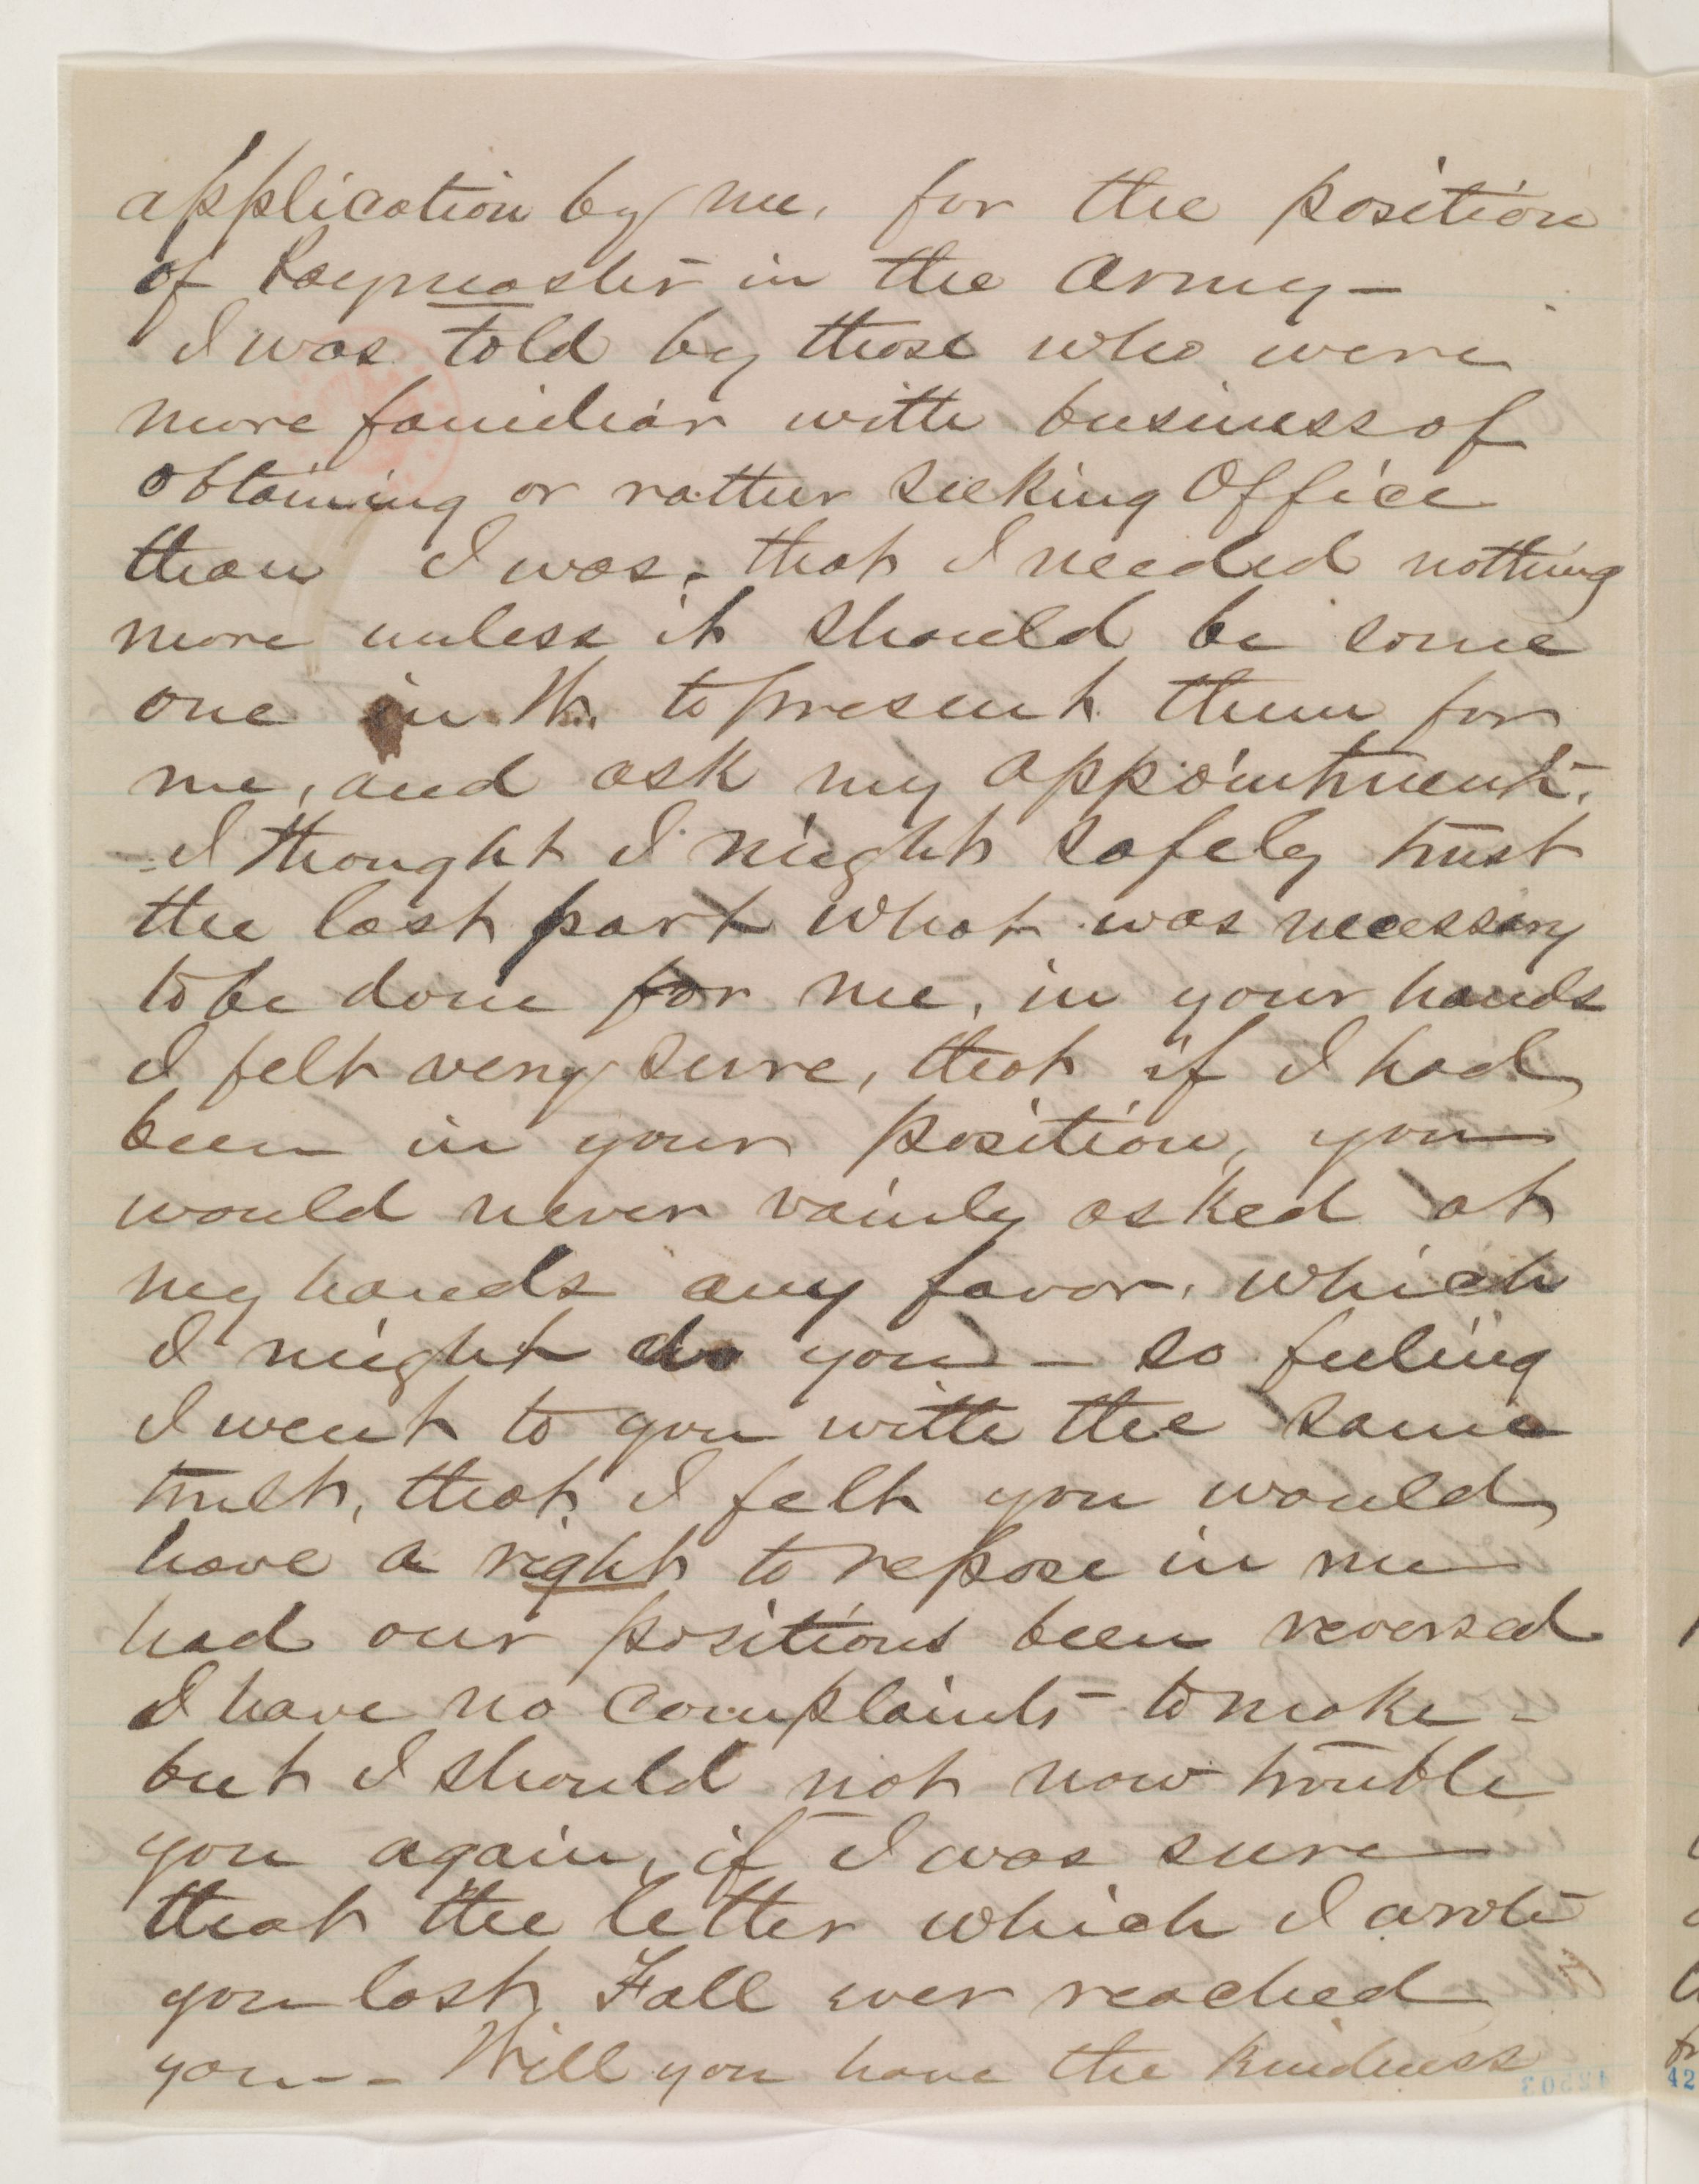 application by me, for the position
of Paymaster in the Army—
I was told by those who were
more familiar with business of
obtaining or rather seeking Office
than I was; that I needed nothing
more unless it should be some
one in W. to present them for
me, and ask my appointment.
- I thought I might safely trust
the last part what was necessary
to be done for me, in your hands
I felt very sure, that if I had
been in your position, you
would never vainly asked at
my hands any favor, which
I might do you — so feeling
I went to you with the same
trust, that I felt you would
have a right to repose in me
had our positions been reversed
I have no complaints to make -
but I should not now trouble
you again, if I was sure
that the letter which I wrote
you last Fall ever reached
you - - Will you have the kindness
42